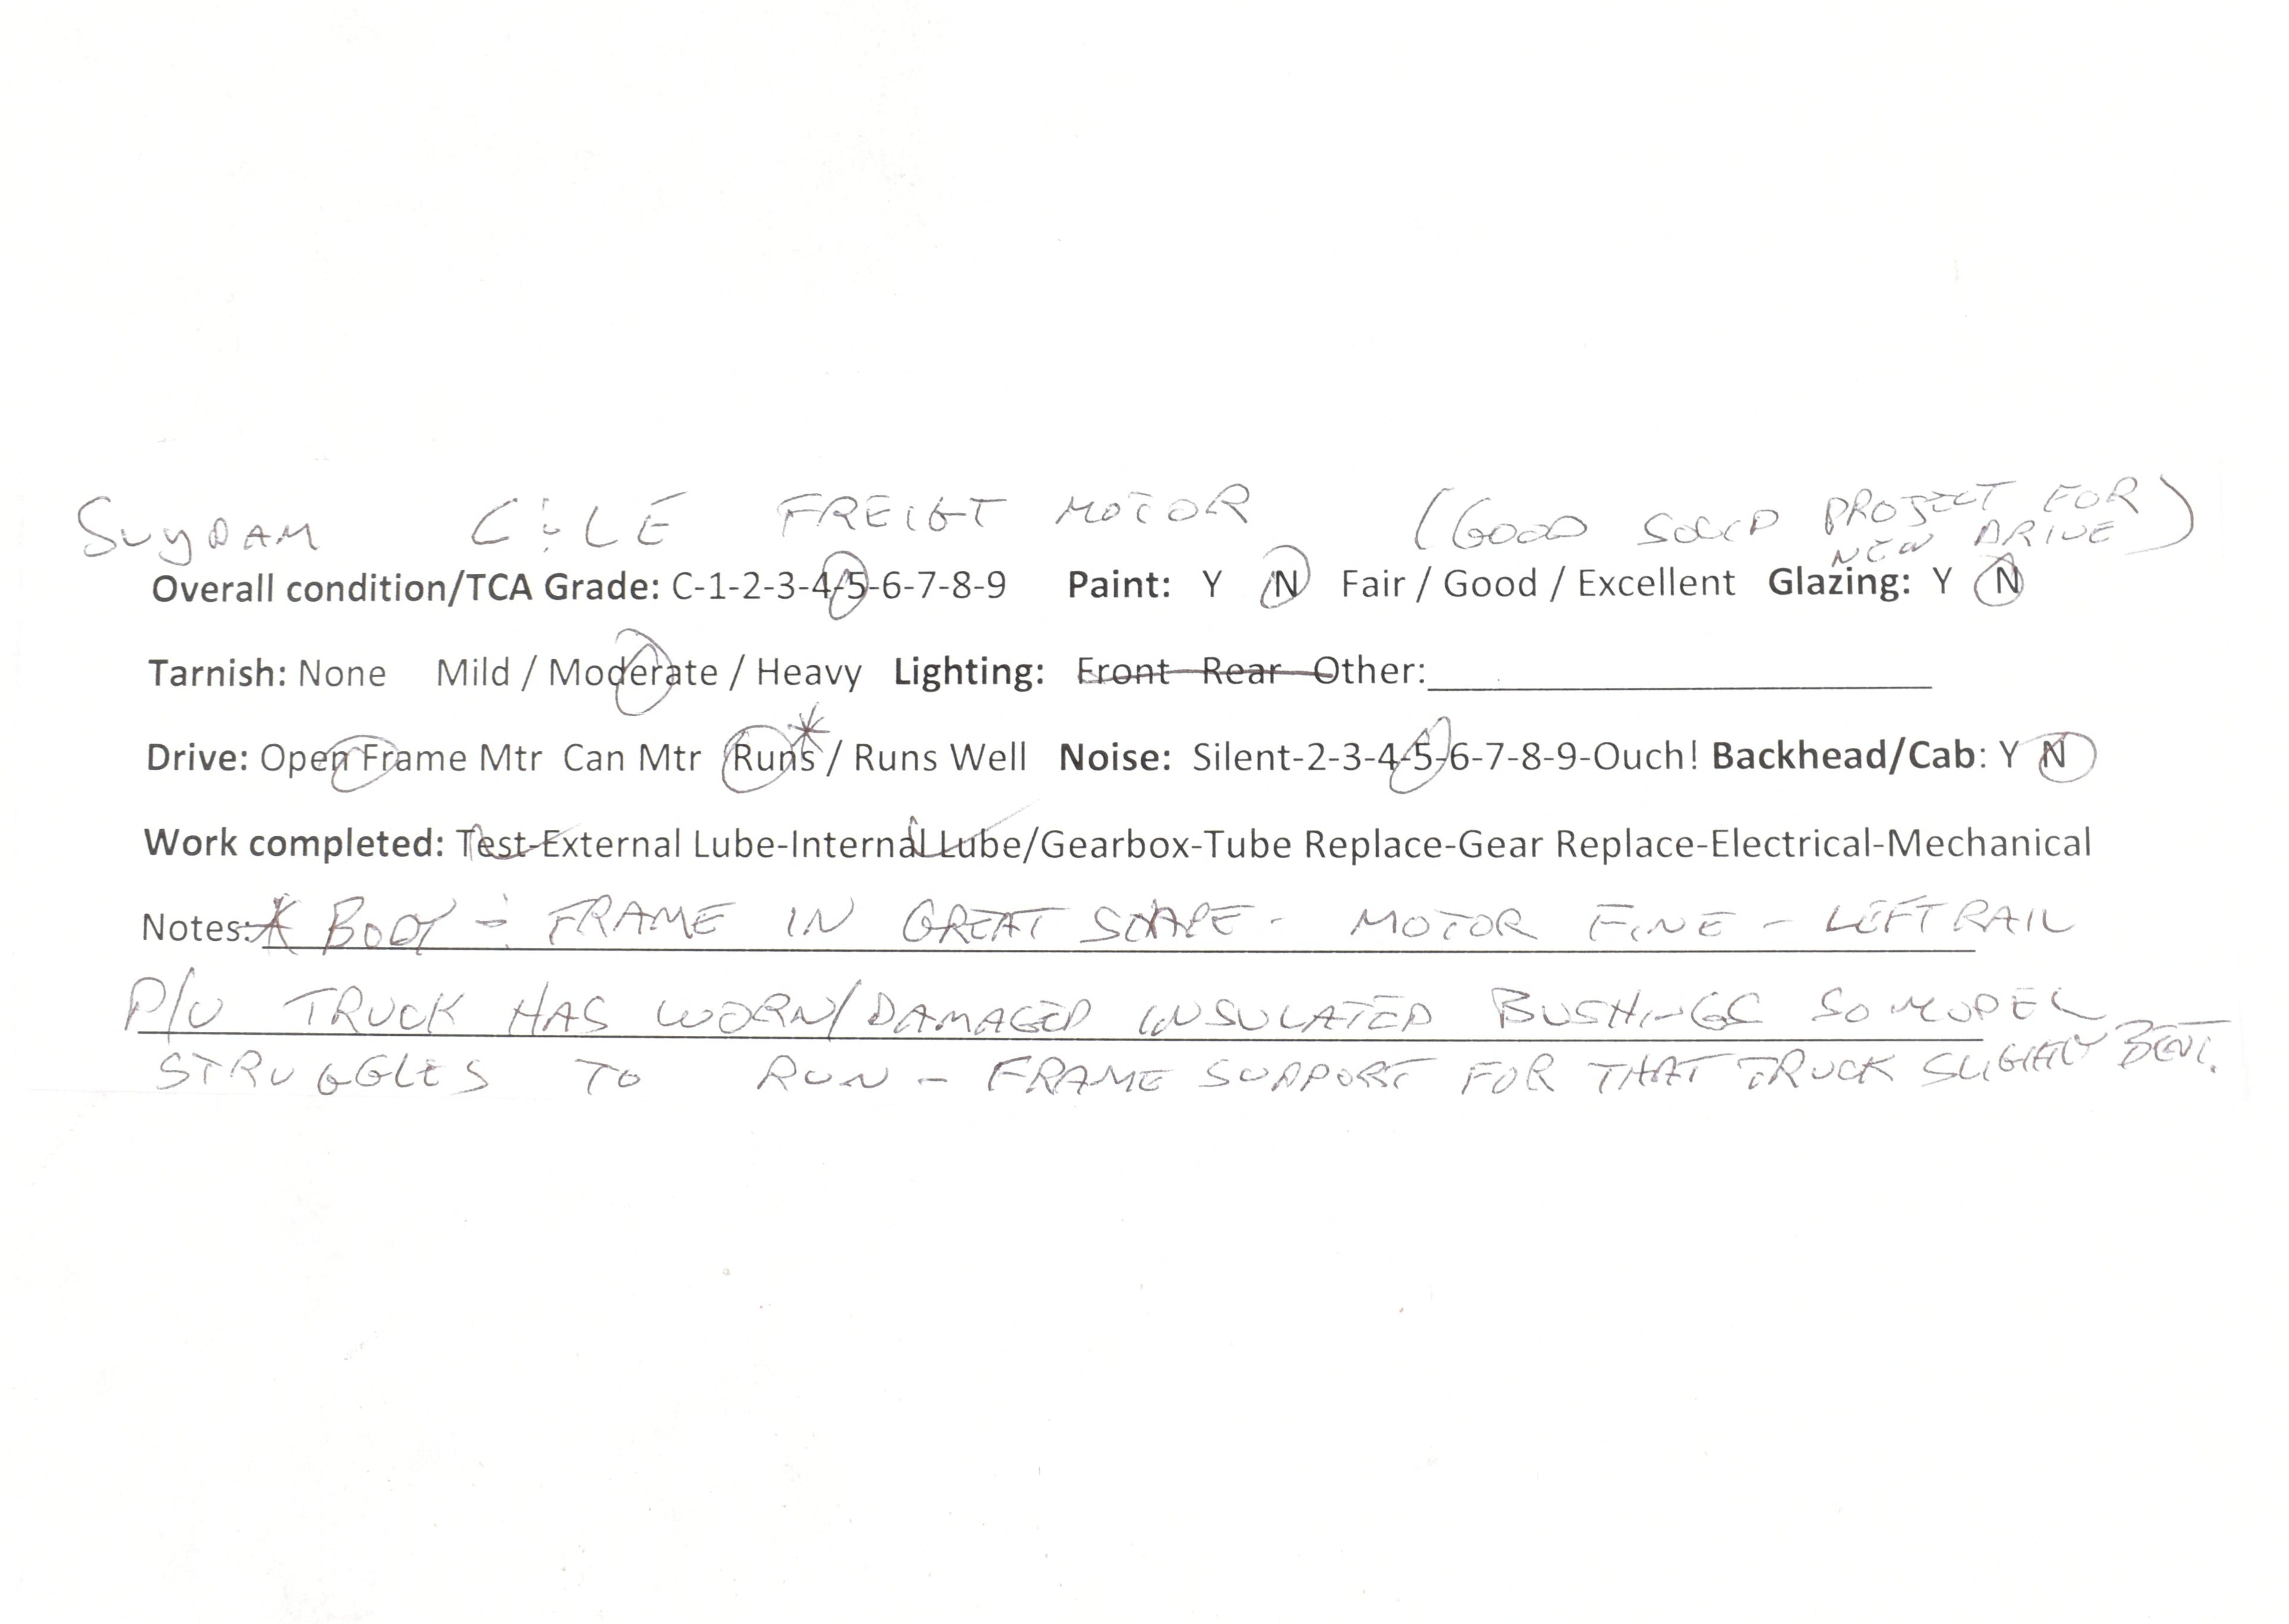 SUYDAM C & LE FREIGT MOTOR (GOOD SOLID PROJECT FOR
NEW DRIVE)
Overall condition/TCA Grade: C-1-2-3-4-5-6-7-8-9 Paint: Y N Fair / Good / Excellent Glazing: Y N
Tarnish: None Mild / Moderate / Heavy Lighting: Front Rear Other:
Drive: Open Frame Mtr Can Mtr Runs* / Runs Well Noise: Silent-2-3-4-5-6-7-8-9-Ouch! Backhead/Cab: Y N
Work completed: Test-External Lube-Internal Lube/Gearbox-Tube Replace-Gear Replace-Electrical-Mechanical
Notes: * BODY & FRAME IN GREAT SHAPE - MOTOR FINE - LEFT RAIL
P/U TRUCK HAS WORN/DAMAGED INSULATED BUSHINGS SO MODEL
STRUGGLES TO RUN - FRAME SUPPORT FOR THAT TRUCK SLIGHTLY BENT.